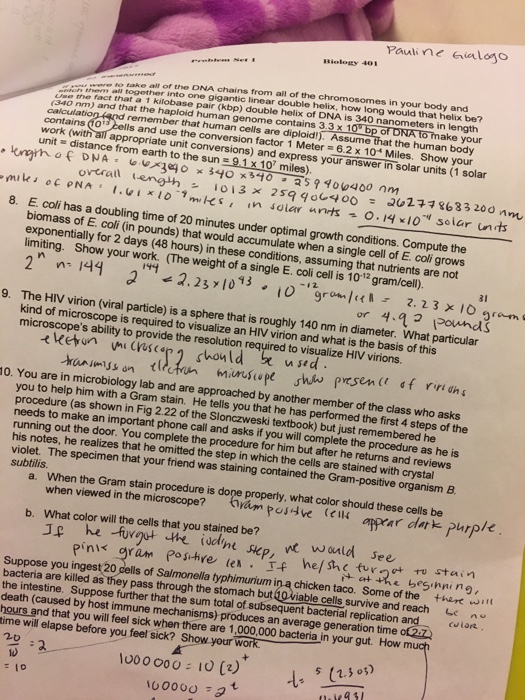 Pauline Gialogo
Problem Set 1 Biology 401
were to take all of the DNA chains from all of the chromosomes in your body and
them all together into one gigantic linear double helix, how long would that helix be?
Use the fact that a 1 kilobase pair (kbp) double helix of DNA is 340 nanometers in length
(340 nm) and that the haploid human genome contains 3.3 x 10⁹ bp of DNA to make your
calculation (and remember that human cells are diploid!). Assume that the human body
contains 10¹³ cells and use the conversion factor 1 Meter = 6.2 x 10⁻⁴ Miles. Show your
work (with all appropriate unit conversions) and express your answer in solar units (1 solar
unit = distance from earth to the sun = 9.1 x 10⁷ miles).
• length of DNA = 6.6x3040 x 340 x340 = 259406400 nm
overall length = 1013 x 259406400 = 262778683200 nm
• miles of DNA = 1.61 x 10⁻⁹ miles, in solar units = 0.14 x10⁻⁴ solar units
8. E. coli has a doubling time of 20 minutes under optimal growth conditions. Compute the
biomass of E. coli (in pounds) that would accumulate when a single cell of E. coli grows
exponentially for 2 days (48 hours) in these conditions, assuming that nutrients are not
limiting. Show your work. (The weight of a single E. coli cell is 10⁻¹² gram/cell).
2ⁿ n= 144 2¹⁴⁴ = 2.23 x 10⁴³ • 10⁻¹² gram/cell = 2.23 x 10³¹ grams
or 4.92 pounds
9. The HIV virion (viral particle) is a sphere that is roughly 140 nm in diameter. What particular
kind of microscope is required to visualize an HIV virion and what is the basis of this
microscope's ability to provide the resolution required to visualize HIV virions.
electron microscopy should be used.
transmission electron microscope show presence of virions
10. You are in microbiology lab and are approached by another member of the class who asks
you to help him with a Gram stain. He tells you that he has performed the first 4 steps of the
procedure (as shown in Fig 2.22 of the Slonczweski textbook) but just remembered he
needs to make an important phone call and asks if you will complete the procedure as he is
running out the door. You complete the procedure for him but after he returns and reviews
his notes, he realizes that he omitted the step in which the cells are stained with crystal
violet. The specimen that your friend was staining contained the Gram-positive organism B.
subtilis.
a. When the Gram stain procedure is done properly, what color should these cells be
when viewed in the microscope? Gram positive cells appear dark purple.
b. What color will the cells that you stained be?
If he forgot the iodine step, we would see
pink gram positive cell. If he/she forgot to stain
it at the beginning,
there will
be no
color.
Suppose you ingest 20 cells of Salmonella typhimurium in a chicken taco. Some of the
bacteria are killed as they pass through the stomach but 10 viable cells survive and reach
the intestine. Suppose further that the sum total of subsequent bacterial replication and
death (caused by host immune mechanisms) produces an average generation time of 2.7
hours and that you will feel sick when there are 1,000,000 bacteria in your gut. How much
time will elapse before you feel sick? Show your work.
20/10 = 2
= 10
1000000 = 10 (2)ᵗ
100000 = 2ᵗ
t= 5 (2.303)